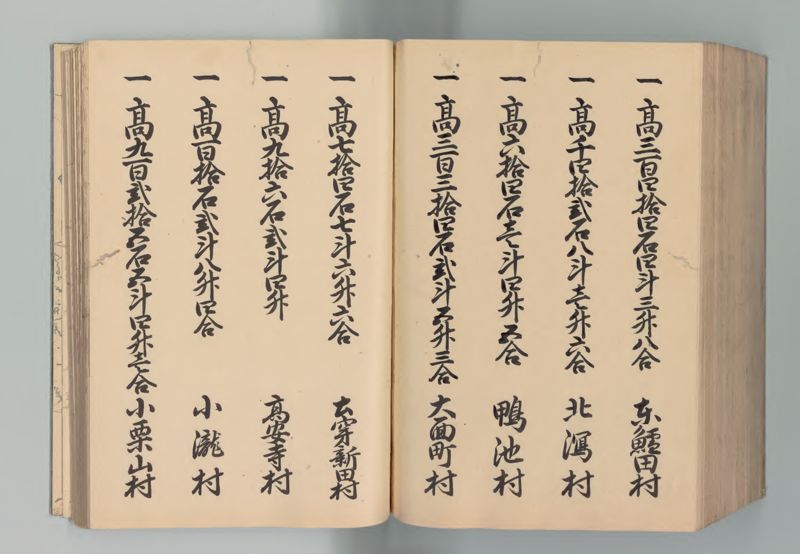 一 高三百四拾四石四斗三升八合 東鱈田村
一 高千四拾弐石八斗壱升六合 北潟村
一 高六拾四石壱斗四升五合 鴨池村
一 高三百三拾四石弐斗五升三合 大面町村
一 高七拾四石七斗六升六合 穿新田村
一 高九拾六石弐斗四升 高安寺村
一 高百拾石弐斗八升四合 小瀧村
一 高九百弐拾五石五斗四升壱合 小栗山村